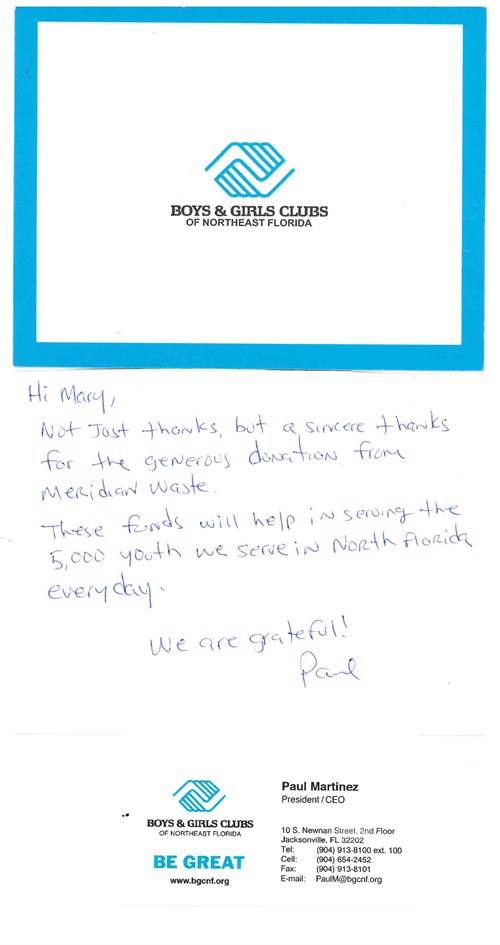 BOYS & GIRLS CLUBS
OF NORTHEAST FLORIDA
Hi Mary,
Not Just thanks, but a sincere thanks
for the generous donation from
Meridian Waste.
These funds will help in serving the
5,000 youth we serve in North Florida
everyday.
We are grateful!
Paul
BOYS & GIRLS CLUBS
OF NORTHEAST FLORIDA
BE GREAT
www.bgcnf.org
Paul Martinez
President / CEO
10 S. Newnan Street, 2nd Floor
Jacksonville, FL 32202
Tel: (904) 913-8100 ext. 100
Cell: (904) 654-2452
Fax: (904) 913-8101
E-mail: PaulM@bgcnf.org